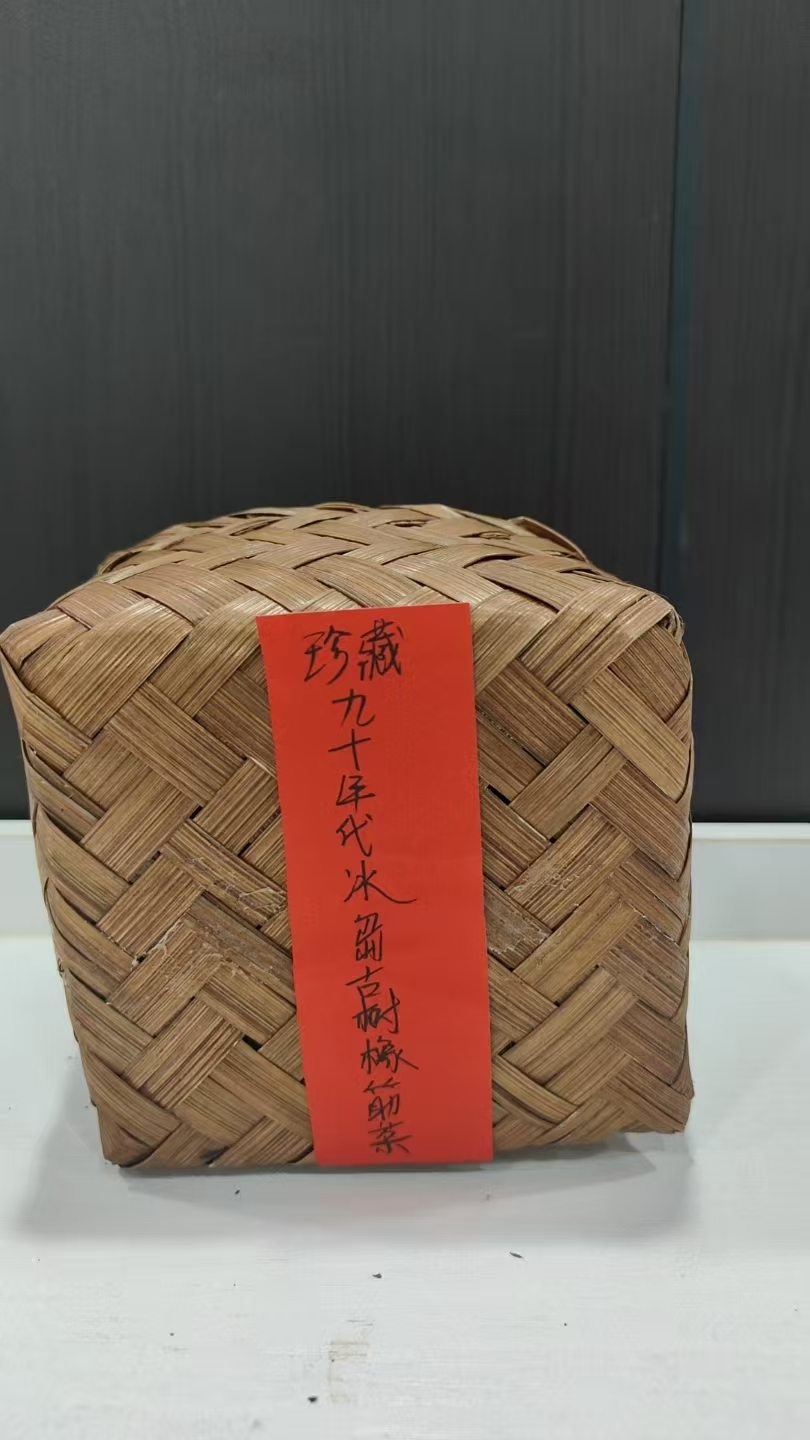 珍藏九十年代冰岛古树橡筋茶